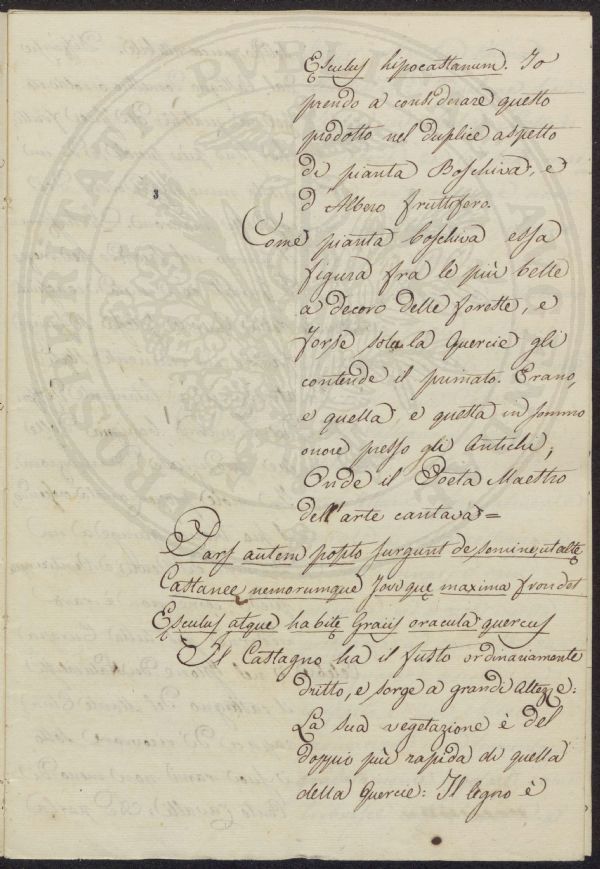 Esculus hipocastanum. Io
prendo a considerare questo
prodotto nel duplice aspetto
di pianta Boschiva, e
d'Albero fruttifero.
3
Come pianta boschiva essa
figura fra le più belle
a decoro delle foreste, e
forse sola la Quercie gli
contende il primato. Erano,
e quella, e questa in sommo
onore presso gli Antichi;
Onde il Poeta Maestro
dell'arte cantava =
Pars autem posito surgunt de semine, ut altę
Castanee nemorumque Jovi quę maxima frondet
Esculus atque habitę Graiis oracula quercus
Il Castagno ha il fusto ordinariamente
dritto, e sorge a grandi Altezze:
La sua vegetazione è del
doppio più rapida di quella
della Quercie: Il legno è